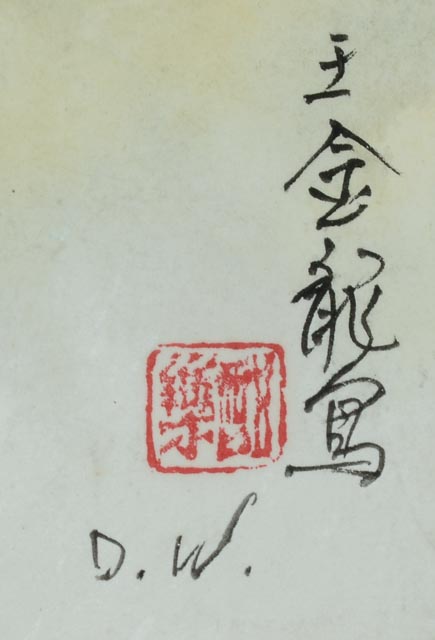 王金龍寫
樂
D. W.